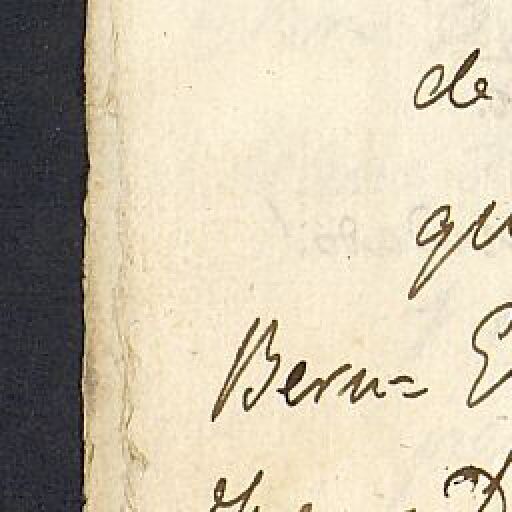 de
qu
Bern= E